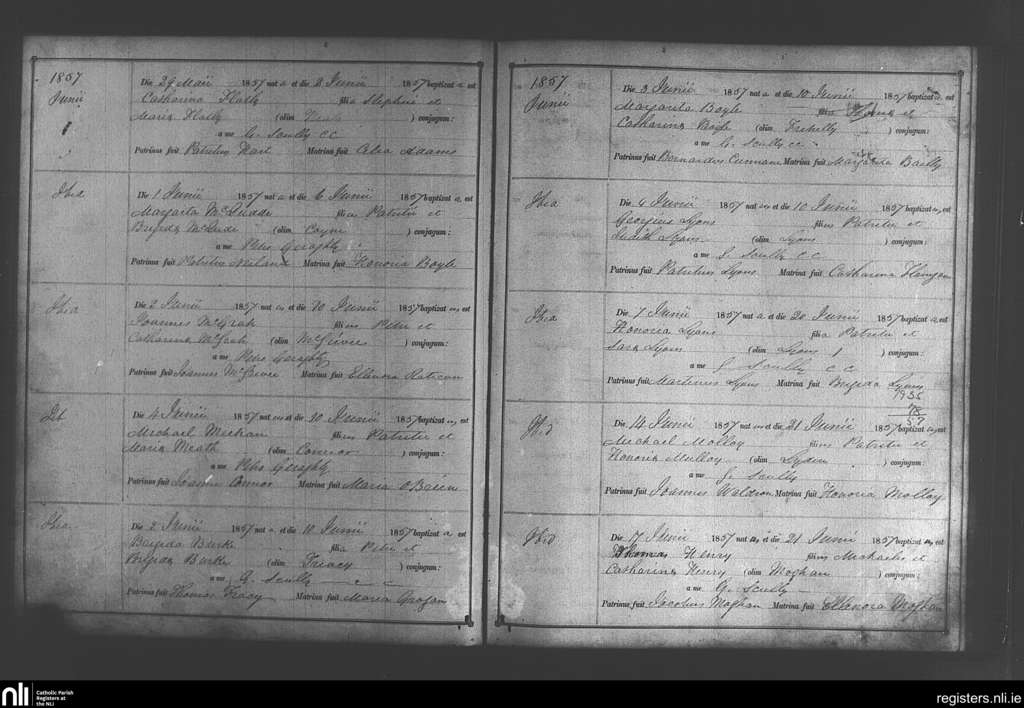 1857
Junii
Die 29 Maii 1857 nat a et die 2 Junii 1857 baptizat a est
Catharina Flatly filia Stephni et
Maria Flatly (olim ) conjugum:
a me G. Scully CC
Patrinus fuit Patritius Hart Matrina fuit Celia Adams
Ibid
Die 1 Junii 1857 nat a et die 6 Junii 1857 baptizat a est
Margarita McLudde filia Patritii et
Brigida McLude (olim Coyne ) conjugum:
a me Petro Geraghty
Patrinus fuit Patritius Neiland Matrina fuit Honoria Boyle
Ibid
Die 2 Junii 1857 nat us et die 10 Junii 1857 baptizat us est
Joannes McGrah filius Petri et
Catharina McGrah (olim ) conjugum:
a me Petro Geraghty
Patrinus fuit Joannes Matrina fuit Ellenora
Die 4 Junii 1857 nat us et die 10 Junii 1857 baptizat us est
Michael Meehan filius Patritii et
Maria Meath (olim Connor ) conjugum:
a me Petro Geraghty
Patrinus fuit Joannes Connor Matrina fuit Maria O Brien
Ibid
Die 2 Junii 1857 nat a et die 10 Junii 1857 baptizat a est
Brigida Burke filia Petri et
Brigida Burke (olim Treacy ) conjugum:
a me G. Scully C C
Patrinus fuit Thomas Tracy Matrina fuit Maria Grogan
1857
Junii
Die 3 Junii 1857 nat a et die 10 Junii 1857 baptizat a est
Margarita Boyle filia et
Catharina Boyle (olim ) conjugum:
a me G. Scully CC
Patrinus fuit Bernardus Cunnane Matrina fuit Margarita
Ibid
Die 4 Junii 1857 nat us et die 10 Junii 1857 baptizat us est
Georgius Lyons filius Patritii et
Judith Lyons (olim Lyons ) conjugum:
a me G Scully C C
Patrinus fuit Patritius Lyons Matrina fuit Catharina
Ibid
Die 1 Junii 1857 nat a et die 20 Junii 1857 baptizat a est
Honoria Lyons filia Patritii et
Sara Lyons (olim Lyons ) conjugum:
a me G Scully C C
Patrinus fuit Martinus Lyons Matrina fuit Brigida Lyons
1935
78
57
Ibid
Die 14 Junii 1857 nat us et die 21 Junii 1857 baptizat us est
Michael Molloy filius Patritii et
Honoria Mulloy (olim Lyden ) conjugum:
a me G. Scully
Patrinus fuit Joannes Waldron Matrina fuit Honoria Molloy
Ibid
Die 17 Junii 1857 nat us et die 21 Junii 1857 baptizat us est
Thomas Henry filius Michaelis et
Catharina Henry (olim Moghan ) conjugum:
a me G. Scully
Patrinus fuit Jacobus Moghan Matrina fuit Ellenora Moghan
nli
Catholic Parish
Registers at
the NLI
registers.nli.ie